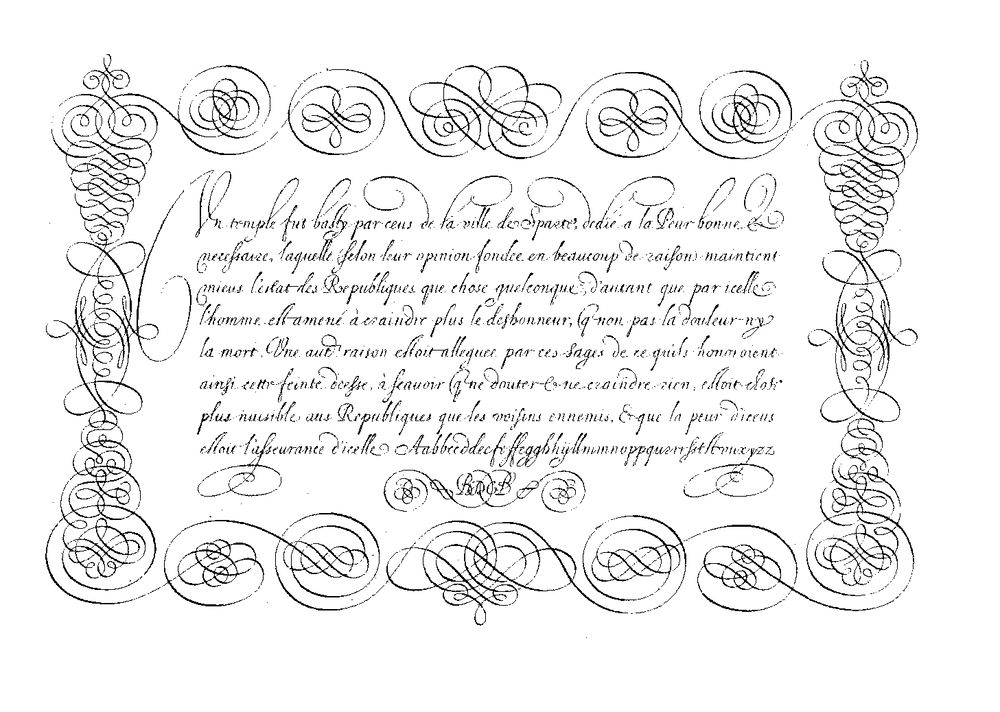 Vn temple fut basty par ceus de la ville de Sparte, dedié a la Peur bonne &
necessaire, laquelle (selon leur opinion fondee en beaucoup de raison) maintient
mieus l'estat des Republiques que chose quelconque, d'autant que par icelle
l'homme est amené à craindre plus le deshonneur, (q non pas la douleur ny
la mort. Vne autr raison estoit alleguee par ces Sages de ce quils honnoroient
ainsi cette feinte deesse, à sçauoir (q ne douter & ne craindre rien, estoit chose
plus nuisible aus Republiques que les voisins ennemis, & que la peur d'iceus
estoit l'asseurance d'icelle